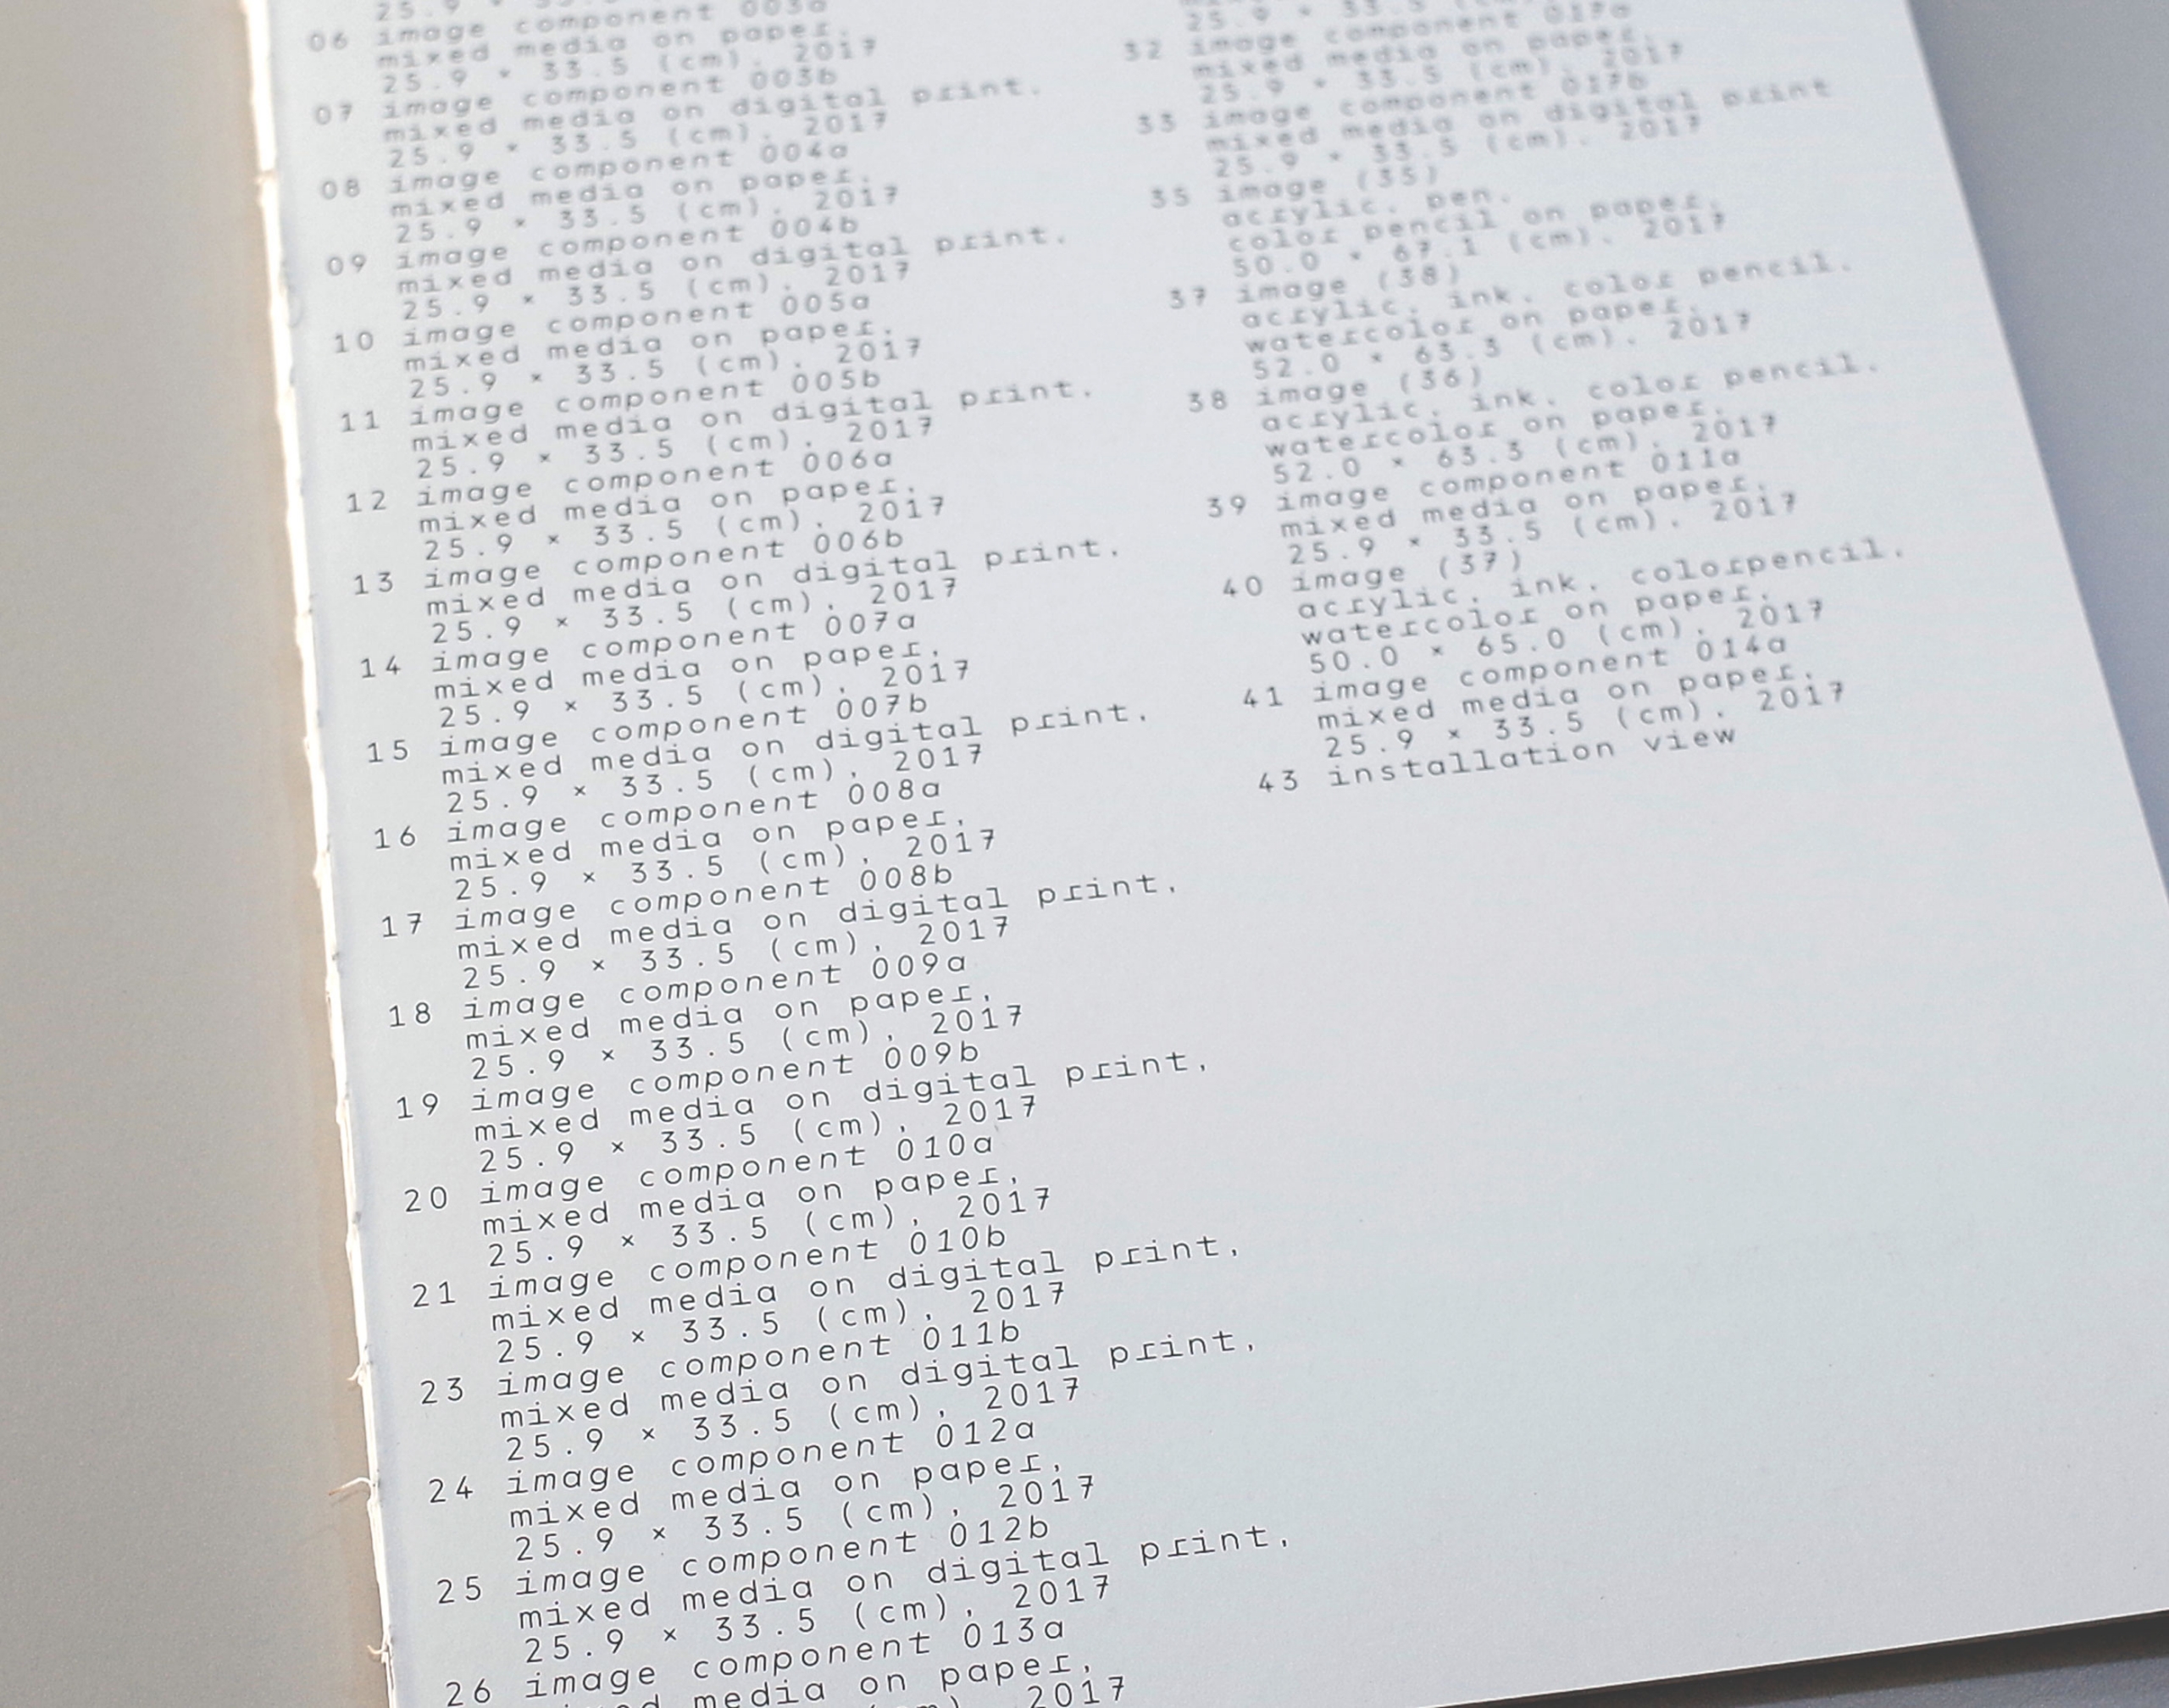 25.9 × 33.5
06 image component 003a
mixed media on paper,
25.9 × 33.5 (cm), 2017
07 image component 003b
mixed media on digital print,
25.9 × 33.5 (cm), 2017
08 image component 004a
mixed media on paper,
25.9 × 33.5 (cm), 2017
09 image component 004b
mixed media on digital print,
25.9 × 33.5 (cm), 2017
10 image component 005a
mixed media on paper,
25.9 × 33.5 (cm), 2017
11 image component 005b
mixed media on digital print,
25.9 × 33.5 (cm), 2017
12 image component 006a
mixed media on paper,
25.9 × 33.5 (cm), 2017
13 image component 006b
mixed media on digital print,
25.9 × 33.5 (cm), 2017
14 image component 007a
mixed media on paper,
25.9 × 33.5 (cm), 2017
15 image component 007b
mixed media on digital print,
25.9 × 33.5 (cm), 2017
16 image component 008a
mixed media on paper,
25.9 × 33.5 (cm), 2017
17 image component 008b
mixed media on digital print,
25.9 × 33.5 (cm), 2017
18 image component 009a
mixed media on paper,
25.9 × 33.5 (cm), 2017
19 image component 009b
mixed media on digital print,
25.9 × 33.5 (cm), 2017
20 image component 010a
mixed media on paper,
25.9 × 33.5 (cm), 2017
21 image component 010b
mixed media on digital print,
25.9 × 33.5 (cm), 2017
23 image component 011b
mixed media on digital print,
25.9 × 33.5 (cm), 2017
24 image component 012a
mixed media on paper,
25.9 × 33.5 (cm), 2017
25 image component 012b
mixed media on digital print,
25.9 × 33.5 (cm), 2017
26 image component 013a
mixed media on paper,
2017
25.9 × 33.5
32 image component 017a
mixed media on paper,
25.9 × 33.5 (cm), 2017
33 image component 017b
mixed media on digital print
25.9 × 33.5 (cm), 2017
35 image (35)
acrylic, pen,
color pencil on paper,
50.0 × 67.1 (cm), 2017
37 image (38)
acrylic, ink, color pencil,
watercolor on paper,
52.0 × 63.3 (cm), 2017
38 image (36)
acrylic, ink, color pencil,
watercolor on paper,
52.0 × 63.3 (cm), 2017
39 image component 011a
mixed media on paper,
25.9 × 33.5 (cm), 2017
40 image (37)
acrylic, ink, colorpencil,
watercolor on paper,
50.0 × 65.0 (cm), 2017
41 image component 014a
mixed media on paper,
25.9 × 33.5 (cm), 2017
43 installation view